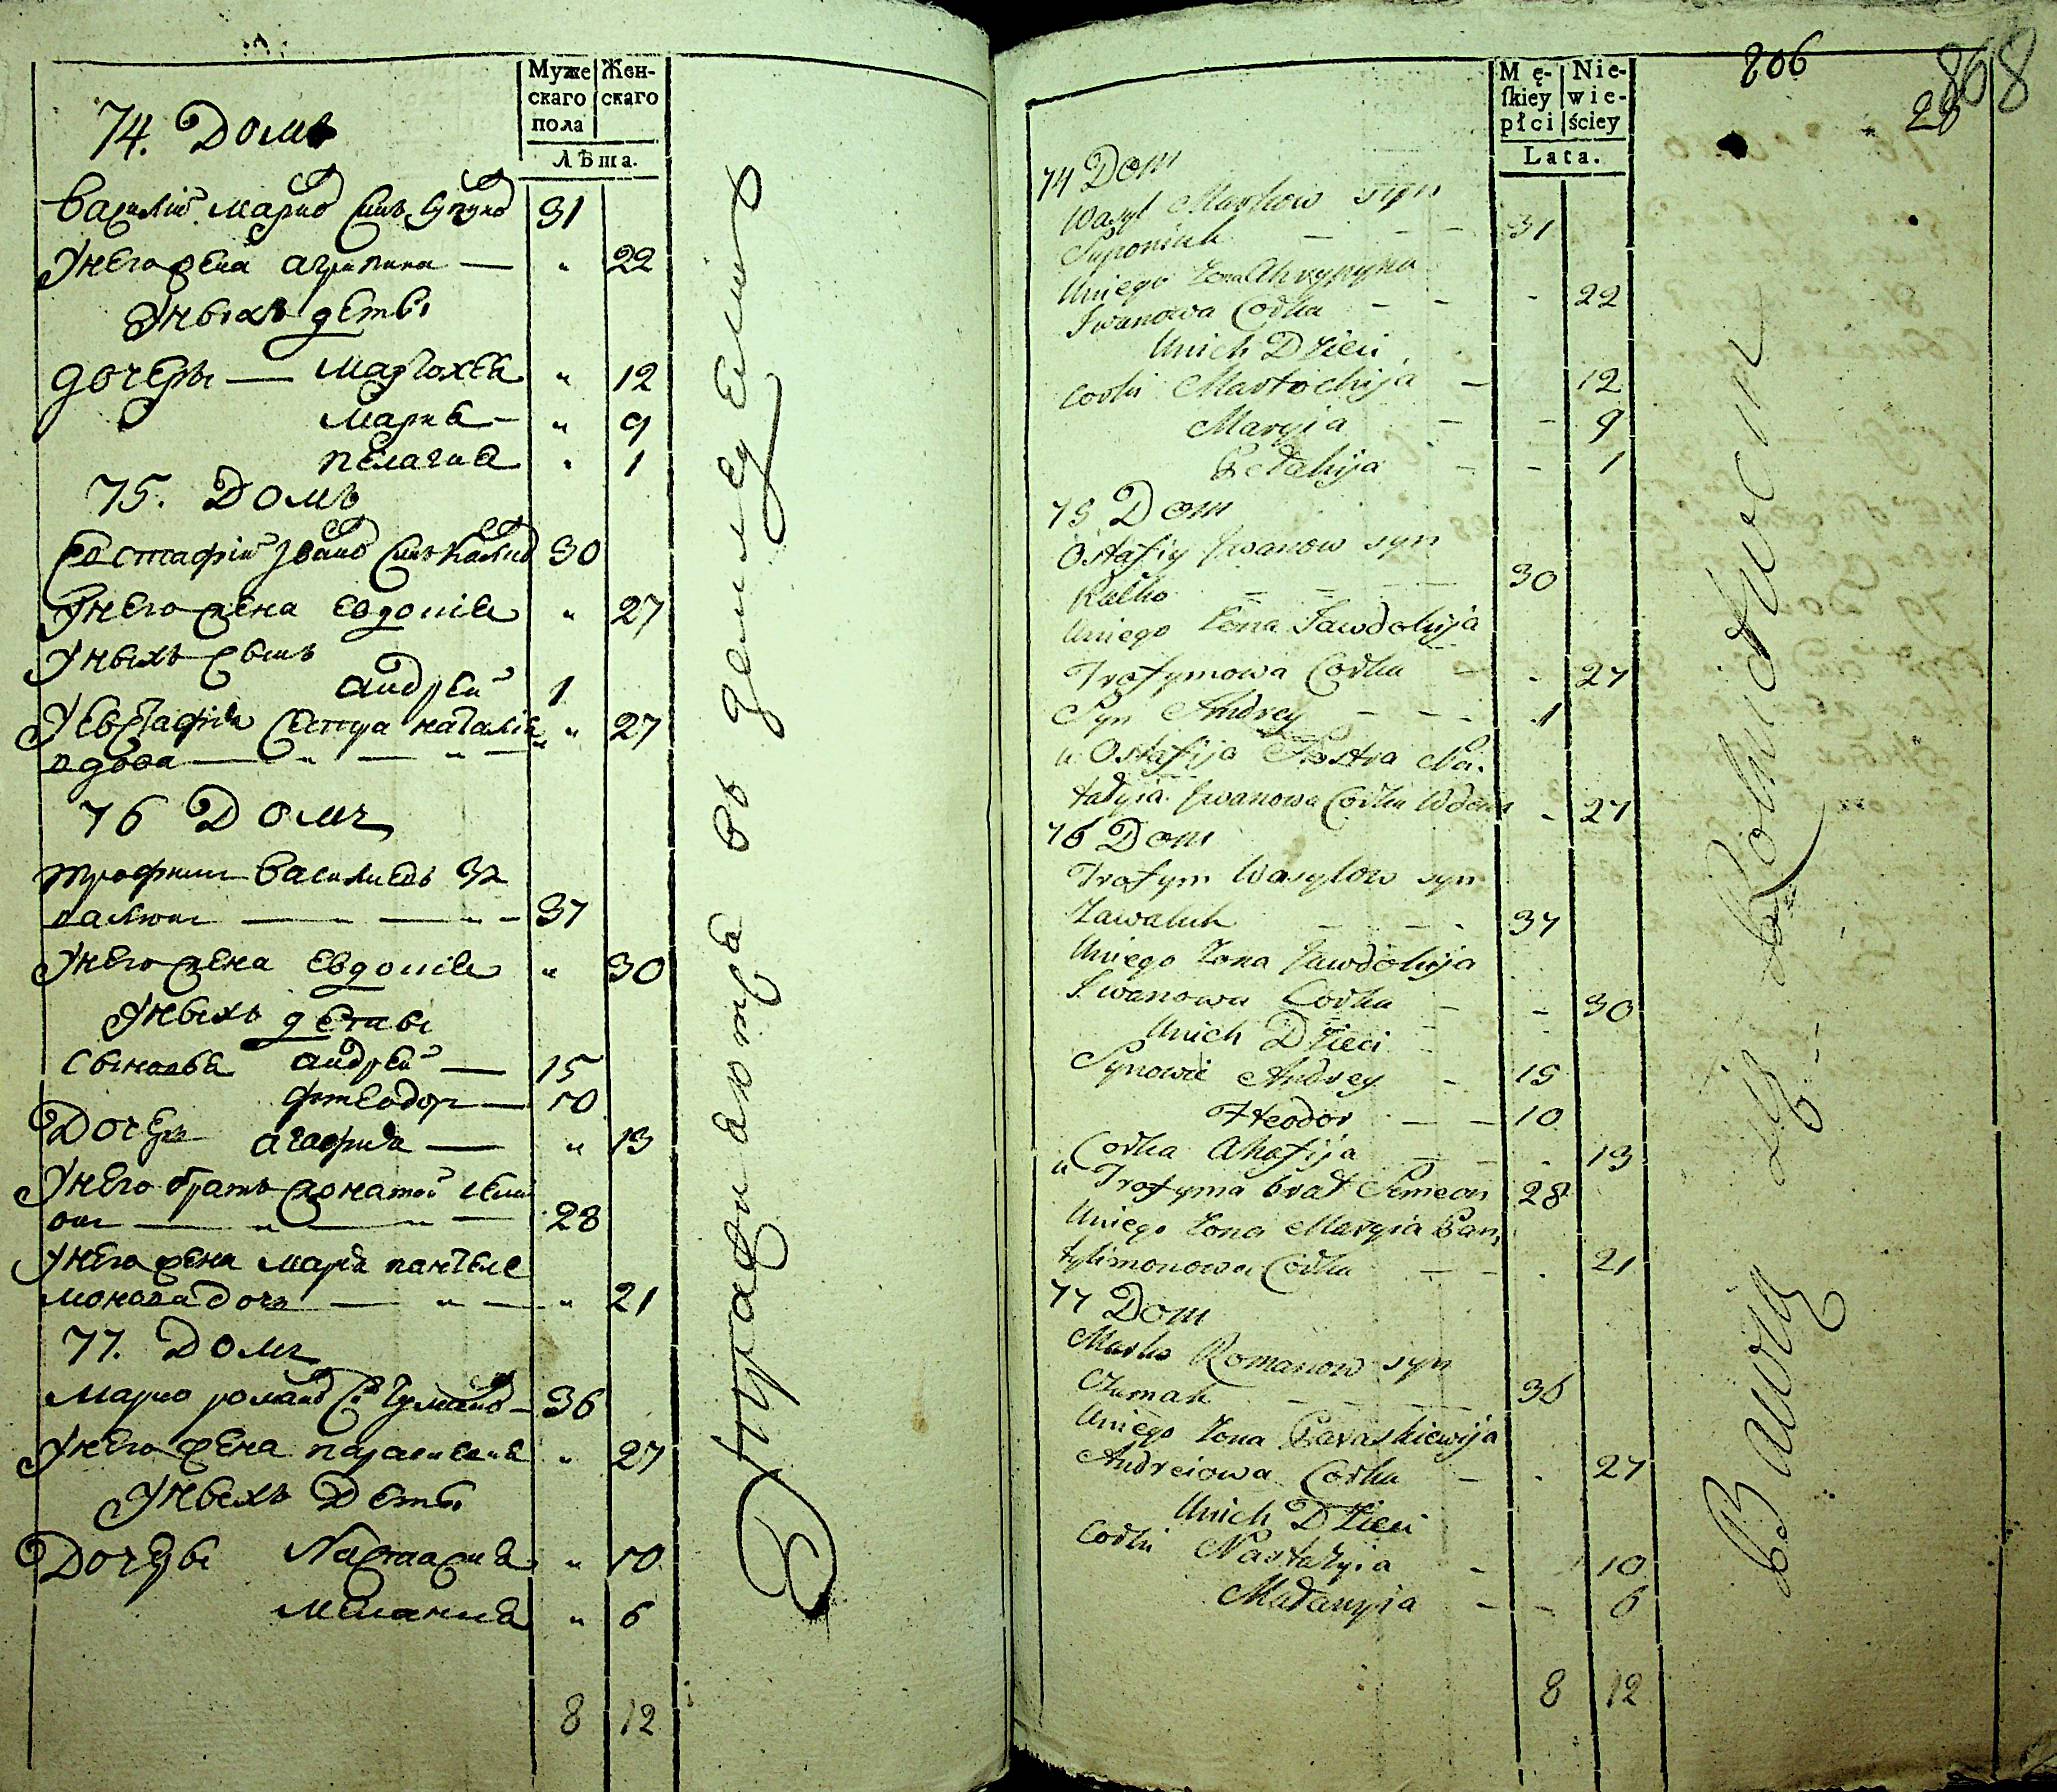 Муже
скаго
пола
Жен-
скаго
Лѣта.
74. Домъ
Василій Марко сынъ Супрунъ 31
У него жена Агрипина — " 22
У них дети
дочеры — Мартохея " 12
Мария — " 9
Пелагия " 1
75. Домъ
Евстафій Іванов сынъ Калко 30
У него жена Евдокия " 27
У них сынъ
Андрей 1
У Евстафия сестра Наталия " 27
вдова — " — " —
76 Домъ
Трофим Василиевъ За
валюк — " — " — 37
У него жена Евдокия " 30
У них дети
Сыновья Андрей — 15
Фтеодор — 10
Дочер Агафия — " 13
У него брат женатой Симе
он — " — " — 28
У него жена Мария Пантеле
монова дочь — " — " 21
77. Домъ
Марко Романов с. Чумаков — 36
У него жена Параскевия " 27
У них Дети
Дочеры Настасия " 10
Мелания " 6
8 12
806
868
28
Mę-
ſkiey
płci
Nie-
wie-
ściey
Lata.
74 Dom
Wasyl Markow syn
Suponiuk — — — 31
Uniego Zona Ahrypyna
Iwanowa Corka — — - 22
Unich Dzieci
Corki Martochija — 12
Maryia — - 9
Pelahija — - 1
75 Dom
Ostafiy Iwanow syn
Kalko — — — 30
Uniego Zona Jawdokija
Trofymowa Corka — - 27
Syn Andrey — — - 1
u Ostafija Siostra Na-
talyia Iwanowa Corka Wdowa - 27
76 Dom
Trofym Wasylow syn
Zawaluk — — - 37
Uniego Zona Jawdokija
Iwanowa Corka — - 30
Unich Dzieci
Synowie Andrey - 15
Fteodor — — 10
Corka Ahafija — — - 13
u Trofyma brat Simeon 28
Uniego Zona Maryia Pan
tylimonowa Corka — - 21
77 Dom
Marko Romanow syn
Czumak — — — 36
Uniego Zona Paraskiewija
Andreiowa Corka — - 27
Unich Dzieci
Corki Nastazyia - 10
Malanyia - - 6
8 12